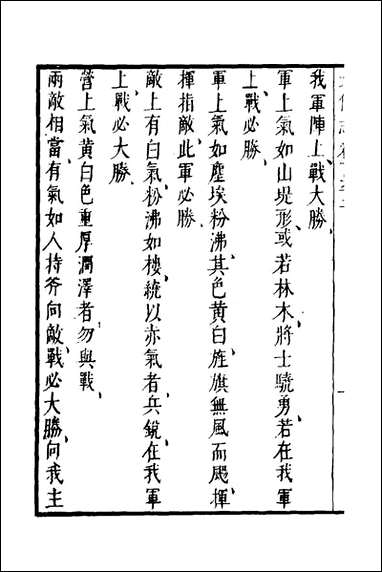 我軍陣上戰大勝
軍上氣如山堤形或若林木將士驍勇若在我軍
上戰必勝
軍上氣如塵埃粉沸其色黄白旌旗無風而颺揮
揮指敵此軍必勝
敵上有白氣粉沸如樓繞以赤氣者兵銳在我軍
上戰必大勝
營上氣黄白色重厚潤澤者勿與戰
兩敵相當有氣如人持斧向敵戰必大勝向我主